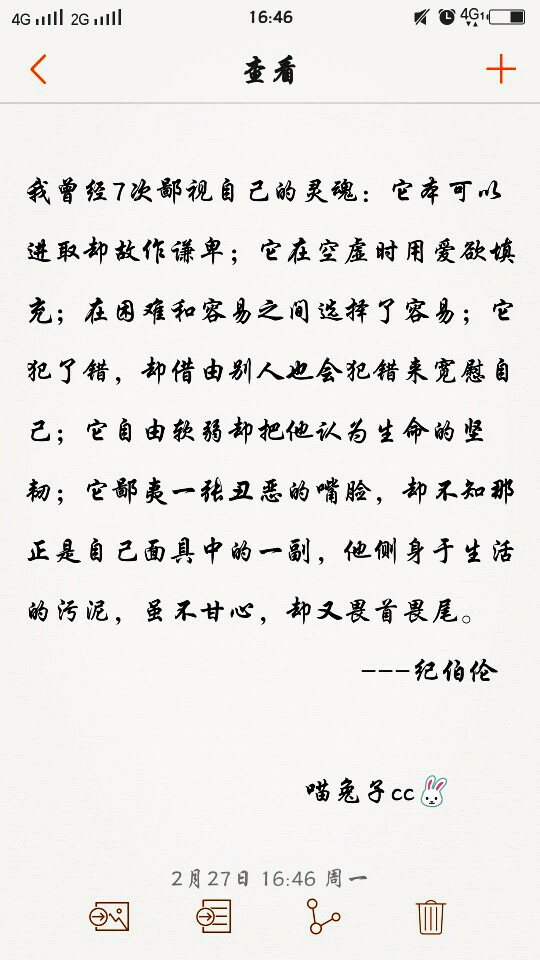 4G 2G 16:46 4G 1
查看
我曾经7次鄙视自己的灵魂：它本可以
进取却故作谦卑；它在空虚时用爱欲填
充；在困难和容易之间选择了容易；它
犯了错，却借由别人也会犯错来宽慰自
己；它自由软弱却把他认为生命的坚
韧；它鄙夷一张丑恶的嘴脸，却不知那
正是自己面具中的一副，他侧身于生活
的污泥，虽不甘心，却又畏首畏尾。
---纪伯伦
喵兔子cc
2月27日 16:46 周一